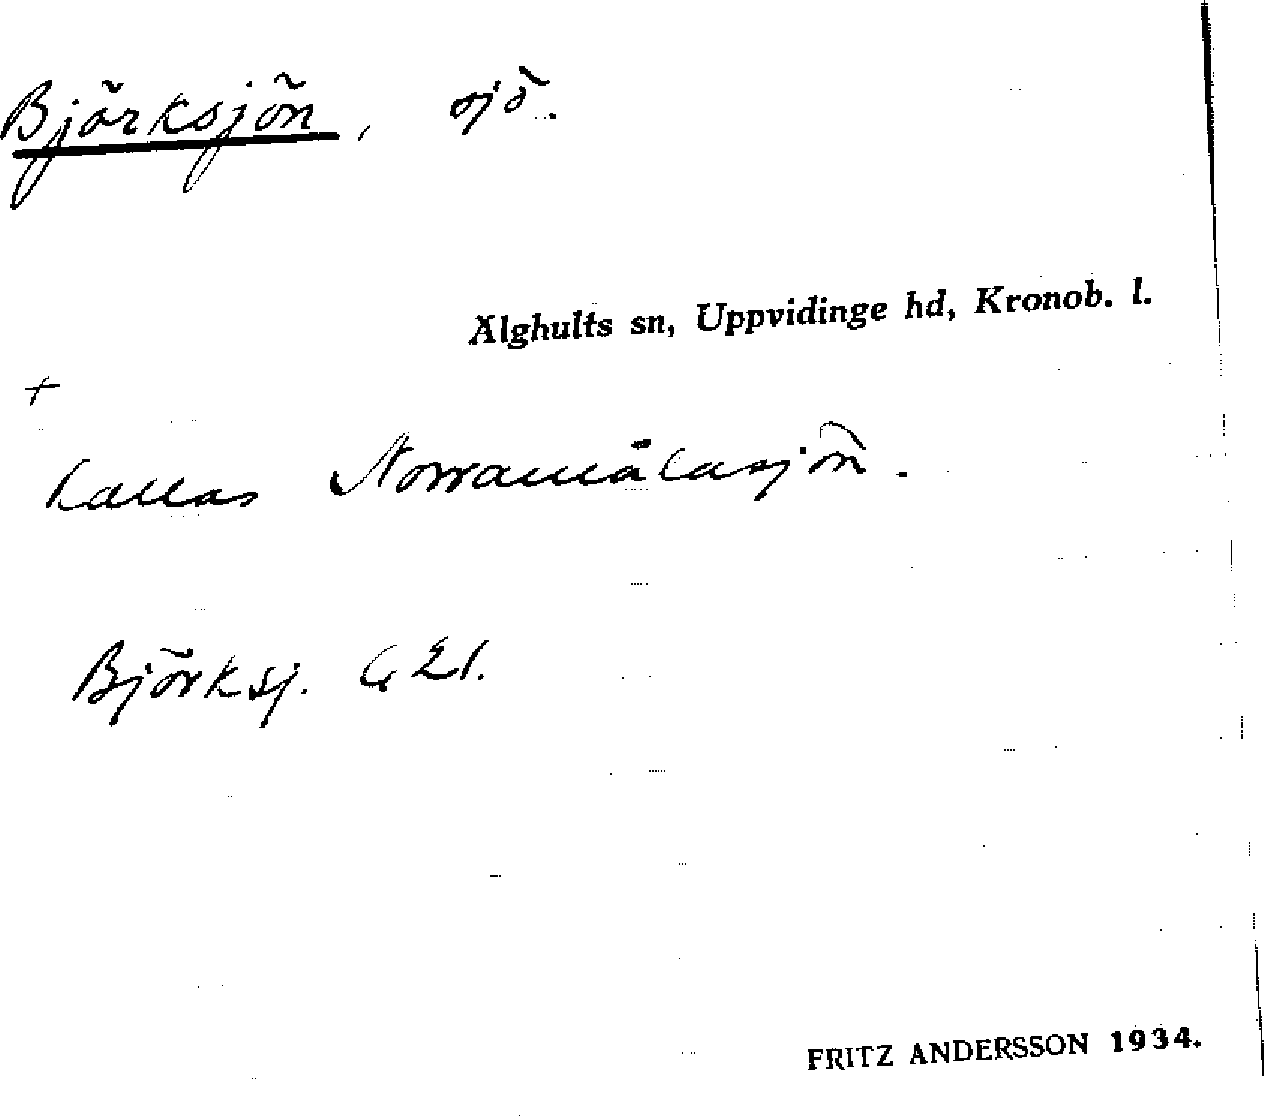 Björksjön, sjö.
Älghults sn, Uppvidinge hd, Kronob. l.
+
kallas Norramålasjön.
Björksj. G 21.
FRITZ ANDERSSON 1934.